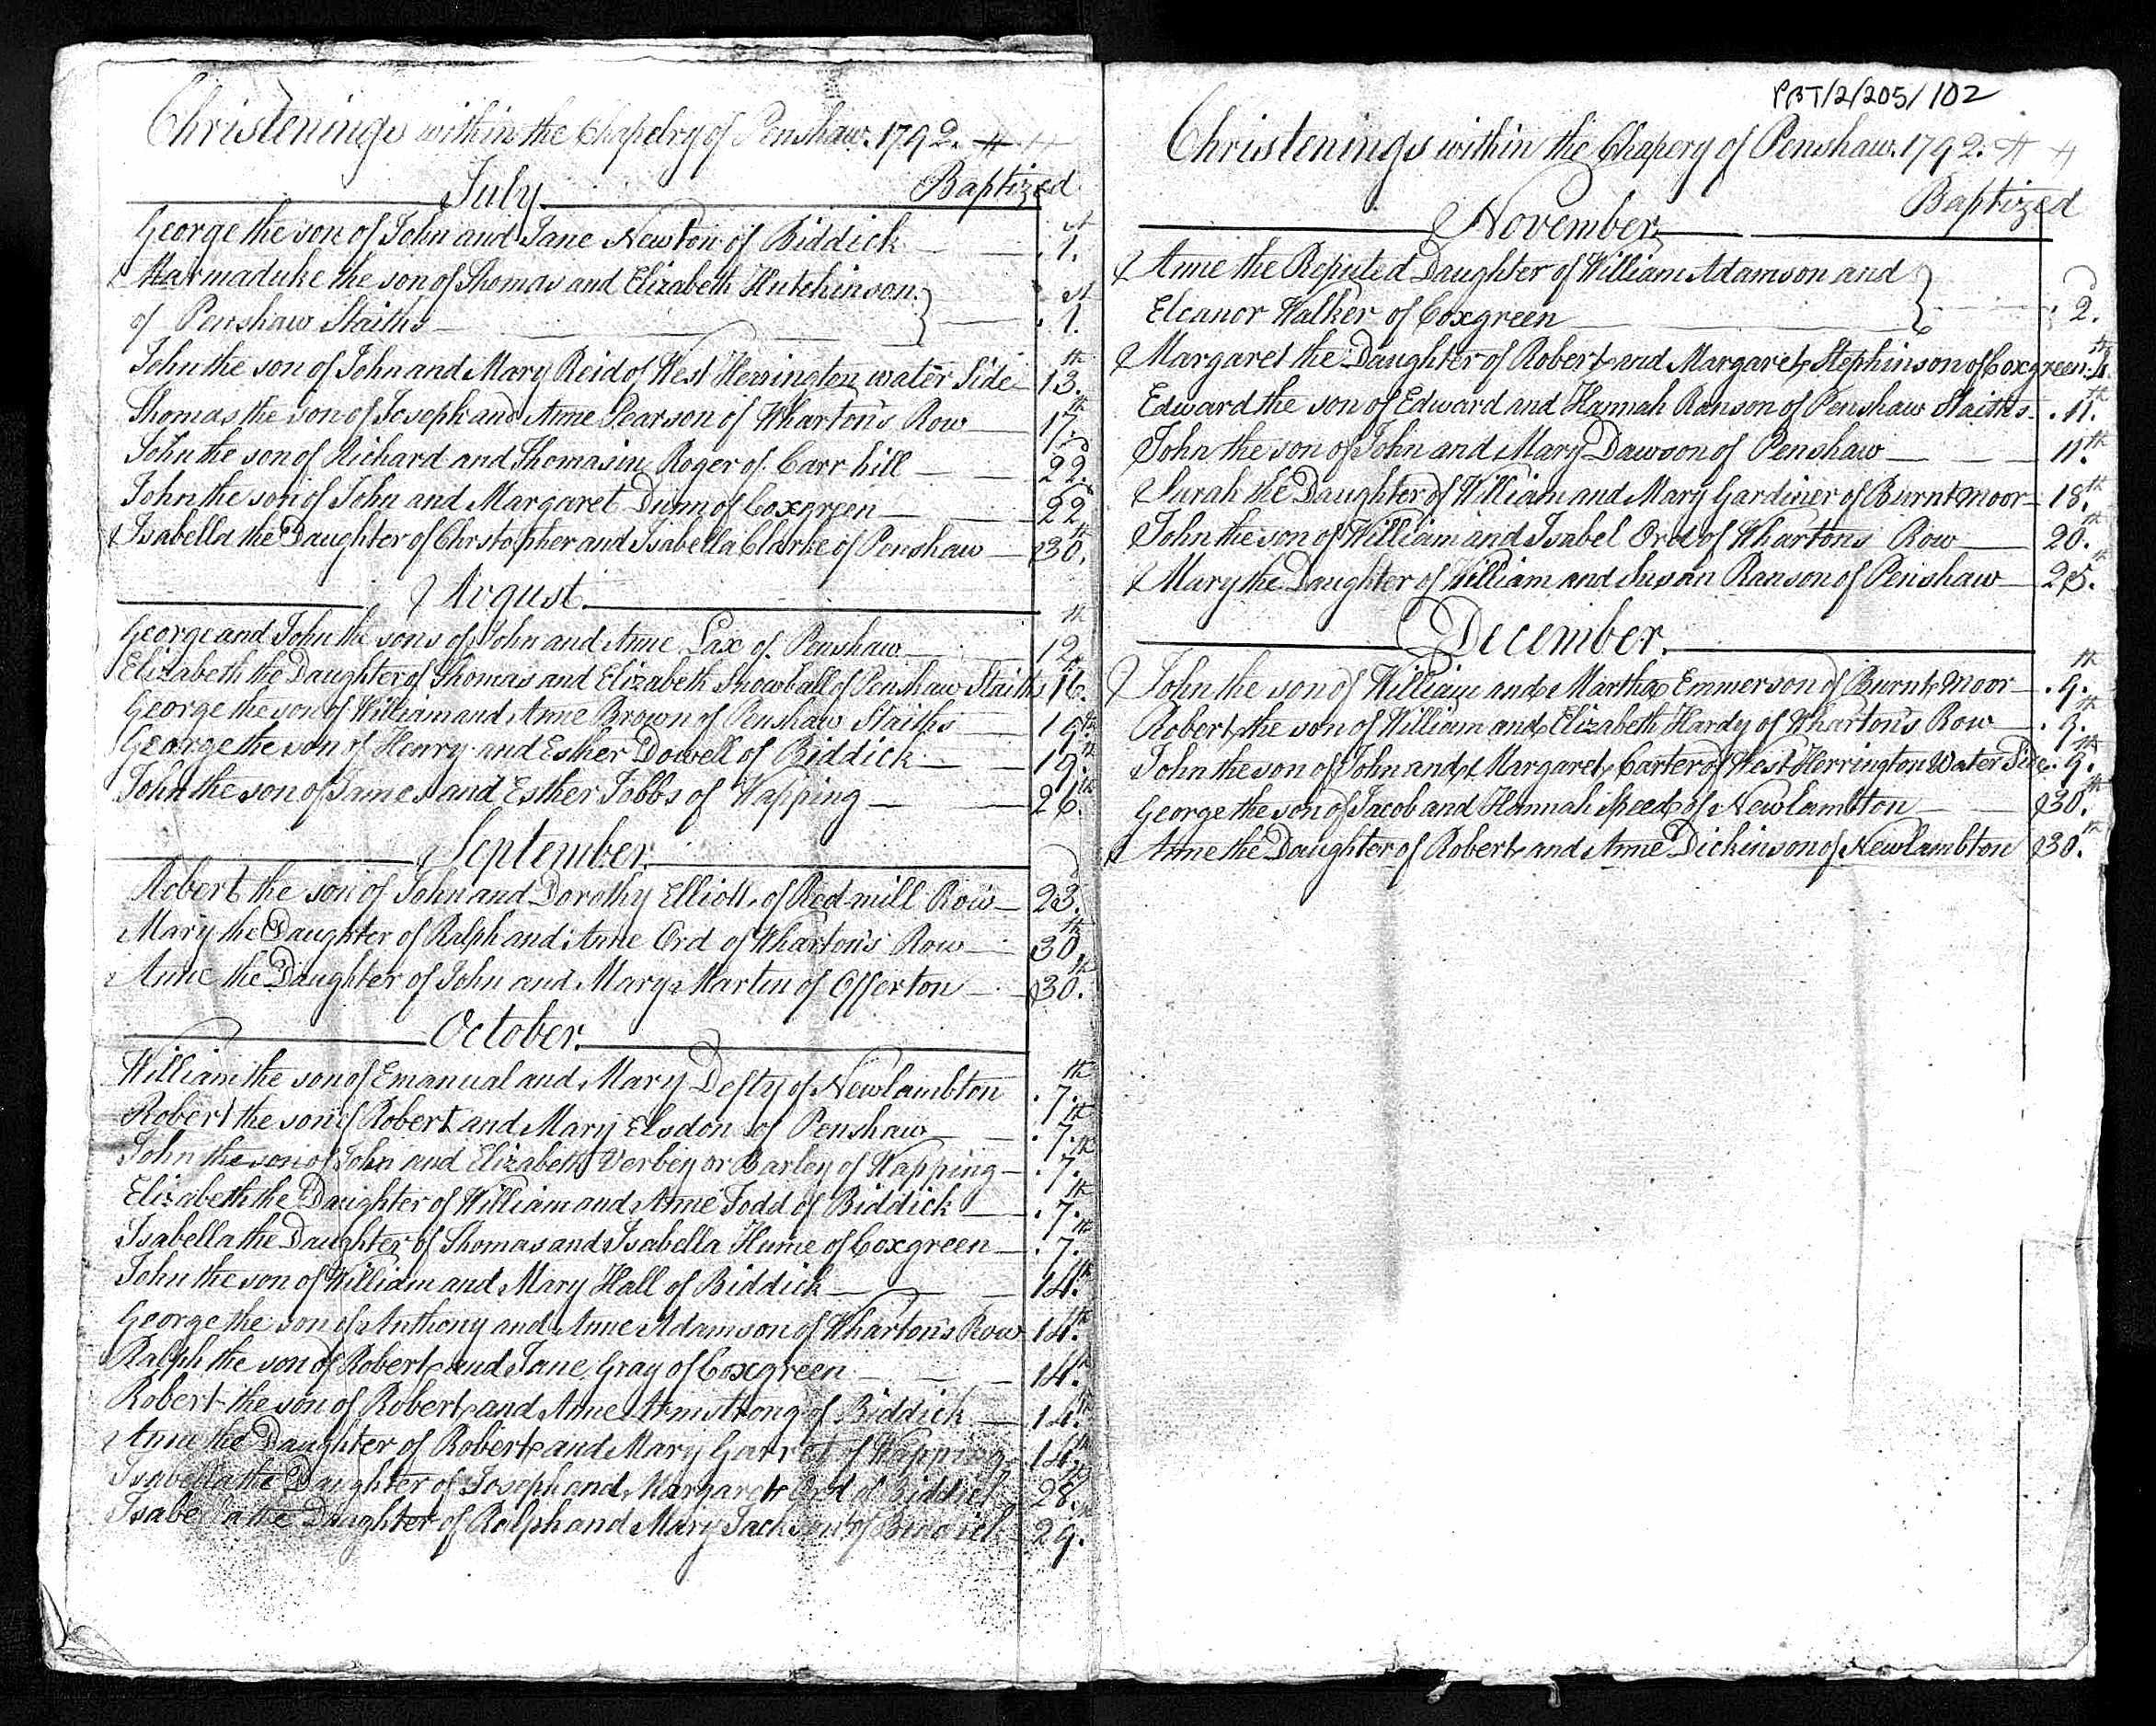 Christenings within the Chapelry of Penshaw. 1792.
Baptized
July
George the son of John and Jane Newton of Biddick 1.st
Marmaduke the son of Thomas and Elizabeth Hutchinson
of Penshaw Staiths 1.st
John the son of John and Mary Reid of West Herrington water Side 13.th
Thomas the son of Joseph and Anne Pearson of Wharton's Row 17.th
John the son of Richard and Thomasin Roger of Carr hill 22.d
John the son of John and Margaret Dunn of Coxgreen 22.
Isabella the Daughter of Chrstopher and Isabella Clarke of Penshaw 30.th
August
George and John the sons of John and Anne Lax of Penshaw 12.th
Elizabeth the Daughter of Thomas and Elizabeth Snowball of Penshaw Staiths 16.th
George the son of William and Anne Brown of Penshaw Staiths 19.th
George the son of Henry and Esther Dowell of Biddick 19.th
John the son of James and Esther Tobbs of Wapping 26.th
September
Robert the son of John and Dorothy Elliott of Red mill Row 23.d
Mary the Daughter of Ralph and Anne Ord of Wharton's Row 30.th
Anne the Daughter of John and Mary Martin of Offerton 30.th
October.
William the son of Emanual and Mary Defty of Newlambton 7.th
Robert the son of Robert and Mary Elsdon of Penshaw 7.th
John the son of John and Elizabeth Verbey or Barley of Wapping 7.th
Elizabeth the Daughter of William and Anne Todd of Biddick 7.th
Isabella the Daughter of Thomas and Isabella Hume of Coxgreen 7.th
John the son of William and Mary Hall of Biddick 14.th
George the son of Anthony and Anne Adamson of Wharton's Row 14.th
Ralph the son of Robert and Jane Gray of Coxgreen 14.th
Robert the son of Robert and Anne Armstrong of Biddick 14.th
Anne the Daughter of Robert and Mary Garrot of Wapping 14.th
Isabella the Daughter of Joseph and Margaret Ord of Biddick 28.th
Isabella the Daughter of Ralph and Mary Jackson of Biddick 29.th
PBT/2/205/102
Christenings within the Chapery of Penshaw. 1792.
Baptized
November
Anne the Reputed Daughter of William Adamson and
Eleanor Walker of Coxgreen 2.d
Margaret the Daughter of Robert and Margaret Stephinson of Coxgreen 4.th
Edward the son of Edward and Hannah Ranson of Penshaw Staiths 11.th
John the son of John and Mary Dawson of Penshaw 11.th
Sarah the Daughter of William and Mary Gardiner of Burnt moor 18.th
John the son of William and Isabel Ord of Whartons Row 20.th
Mary the Daughter of William and Susan Ranson of Penshaw 25.th
December.
John the son of William and Martha Emmerson of Burnt Moor 9.th
Robert the son of William and Elizabeth Hardy of Wharton's Row 9.th
John the son of John and Margaret Carter of West Herrington Water Side 9.th
George the son of Jacob and Hannah Speed of Newlambton 30.th
Anne the Daughter of Robert and Anne Dickinson of Newlambton 30.th